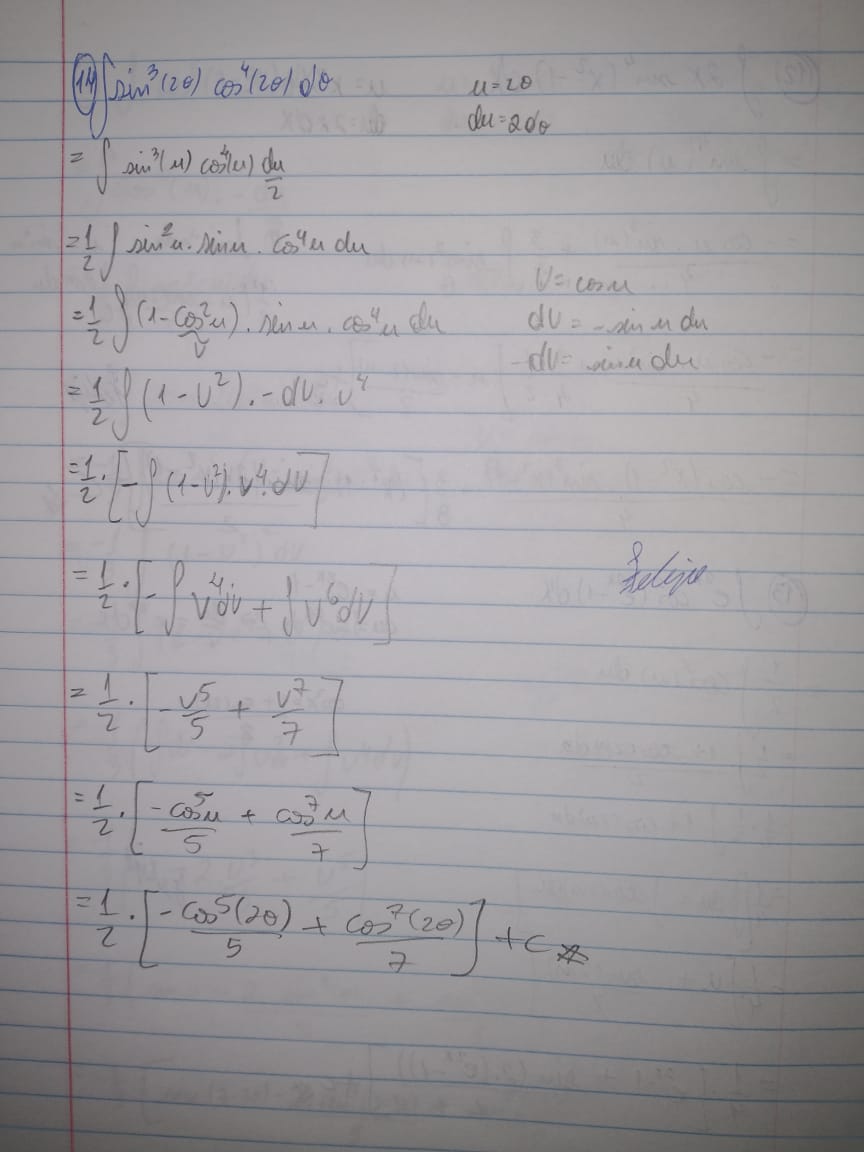 14) ∫ sin³(2θ) cos⁴(2θ) dθ u=2θ
du=2dθ
= ∫ sin³(u) cos⁴(u) du/2
= 1/2 ∫ sin²u . sinu . cos⁴u du
V=cosu
= 1/2 ∫ (1-cos²u) . sinu . cos⁴u du dV = -sinu du
V
-dV = sinu du
= 1/2 ∫ (1-V²) . -dV . V⁴
= 1/2 . [-∫ (1-V²) . V⁴ . dV]
Felipe
= 1/2 . [-∫ V⁴dV + ∫ V⁶dV]
= 1/2 . [-V⁵/5 + V⁷/7]
= 1/2 . [-cos⁵u/5 + cos⁷u/7]
= 1/2 . [-cos⁵(2θ)/5 + cos⁷(2θ)/7] + C